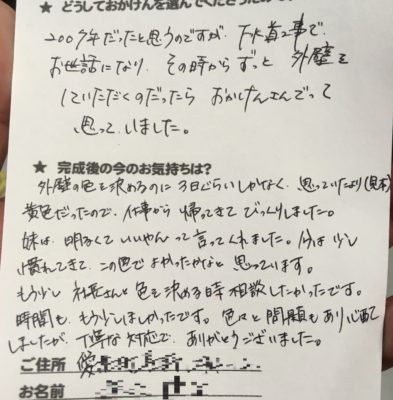 ★どうしておかけんを選んでくださった
2007年だったと思うのですが、下水道工事で
お世話になり、その時からずっと外壁を
していただくのだったらおかけんさんでって
思っていました。
★完成後の今のお気持ちは?
外壁の色を決めるのに3日ぐらいしかなく、思っていたより(見本)
黄色だったので、仕事から帰ってきてびっくりしました。
妹は、明るくていいやんって言ってくれました。今は少し
慣れてきて、この色でよかったかなと思っています。
もう少し社長さんと色を決める時相談したかったです。
時間も、もう少しほしかったです。色々と問題もあり心配
しましたが、丁寧な対応で、ありがとうございました。
ご住所
お名前